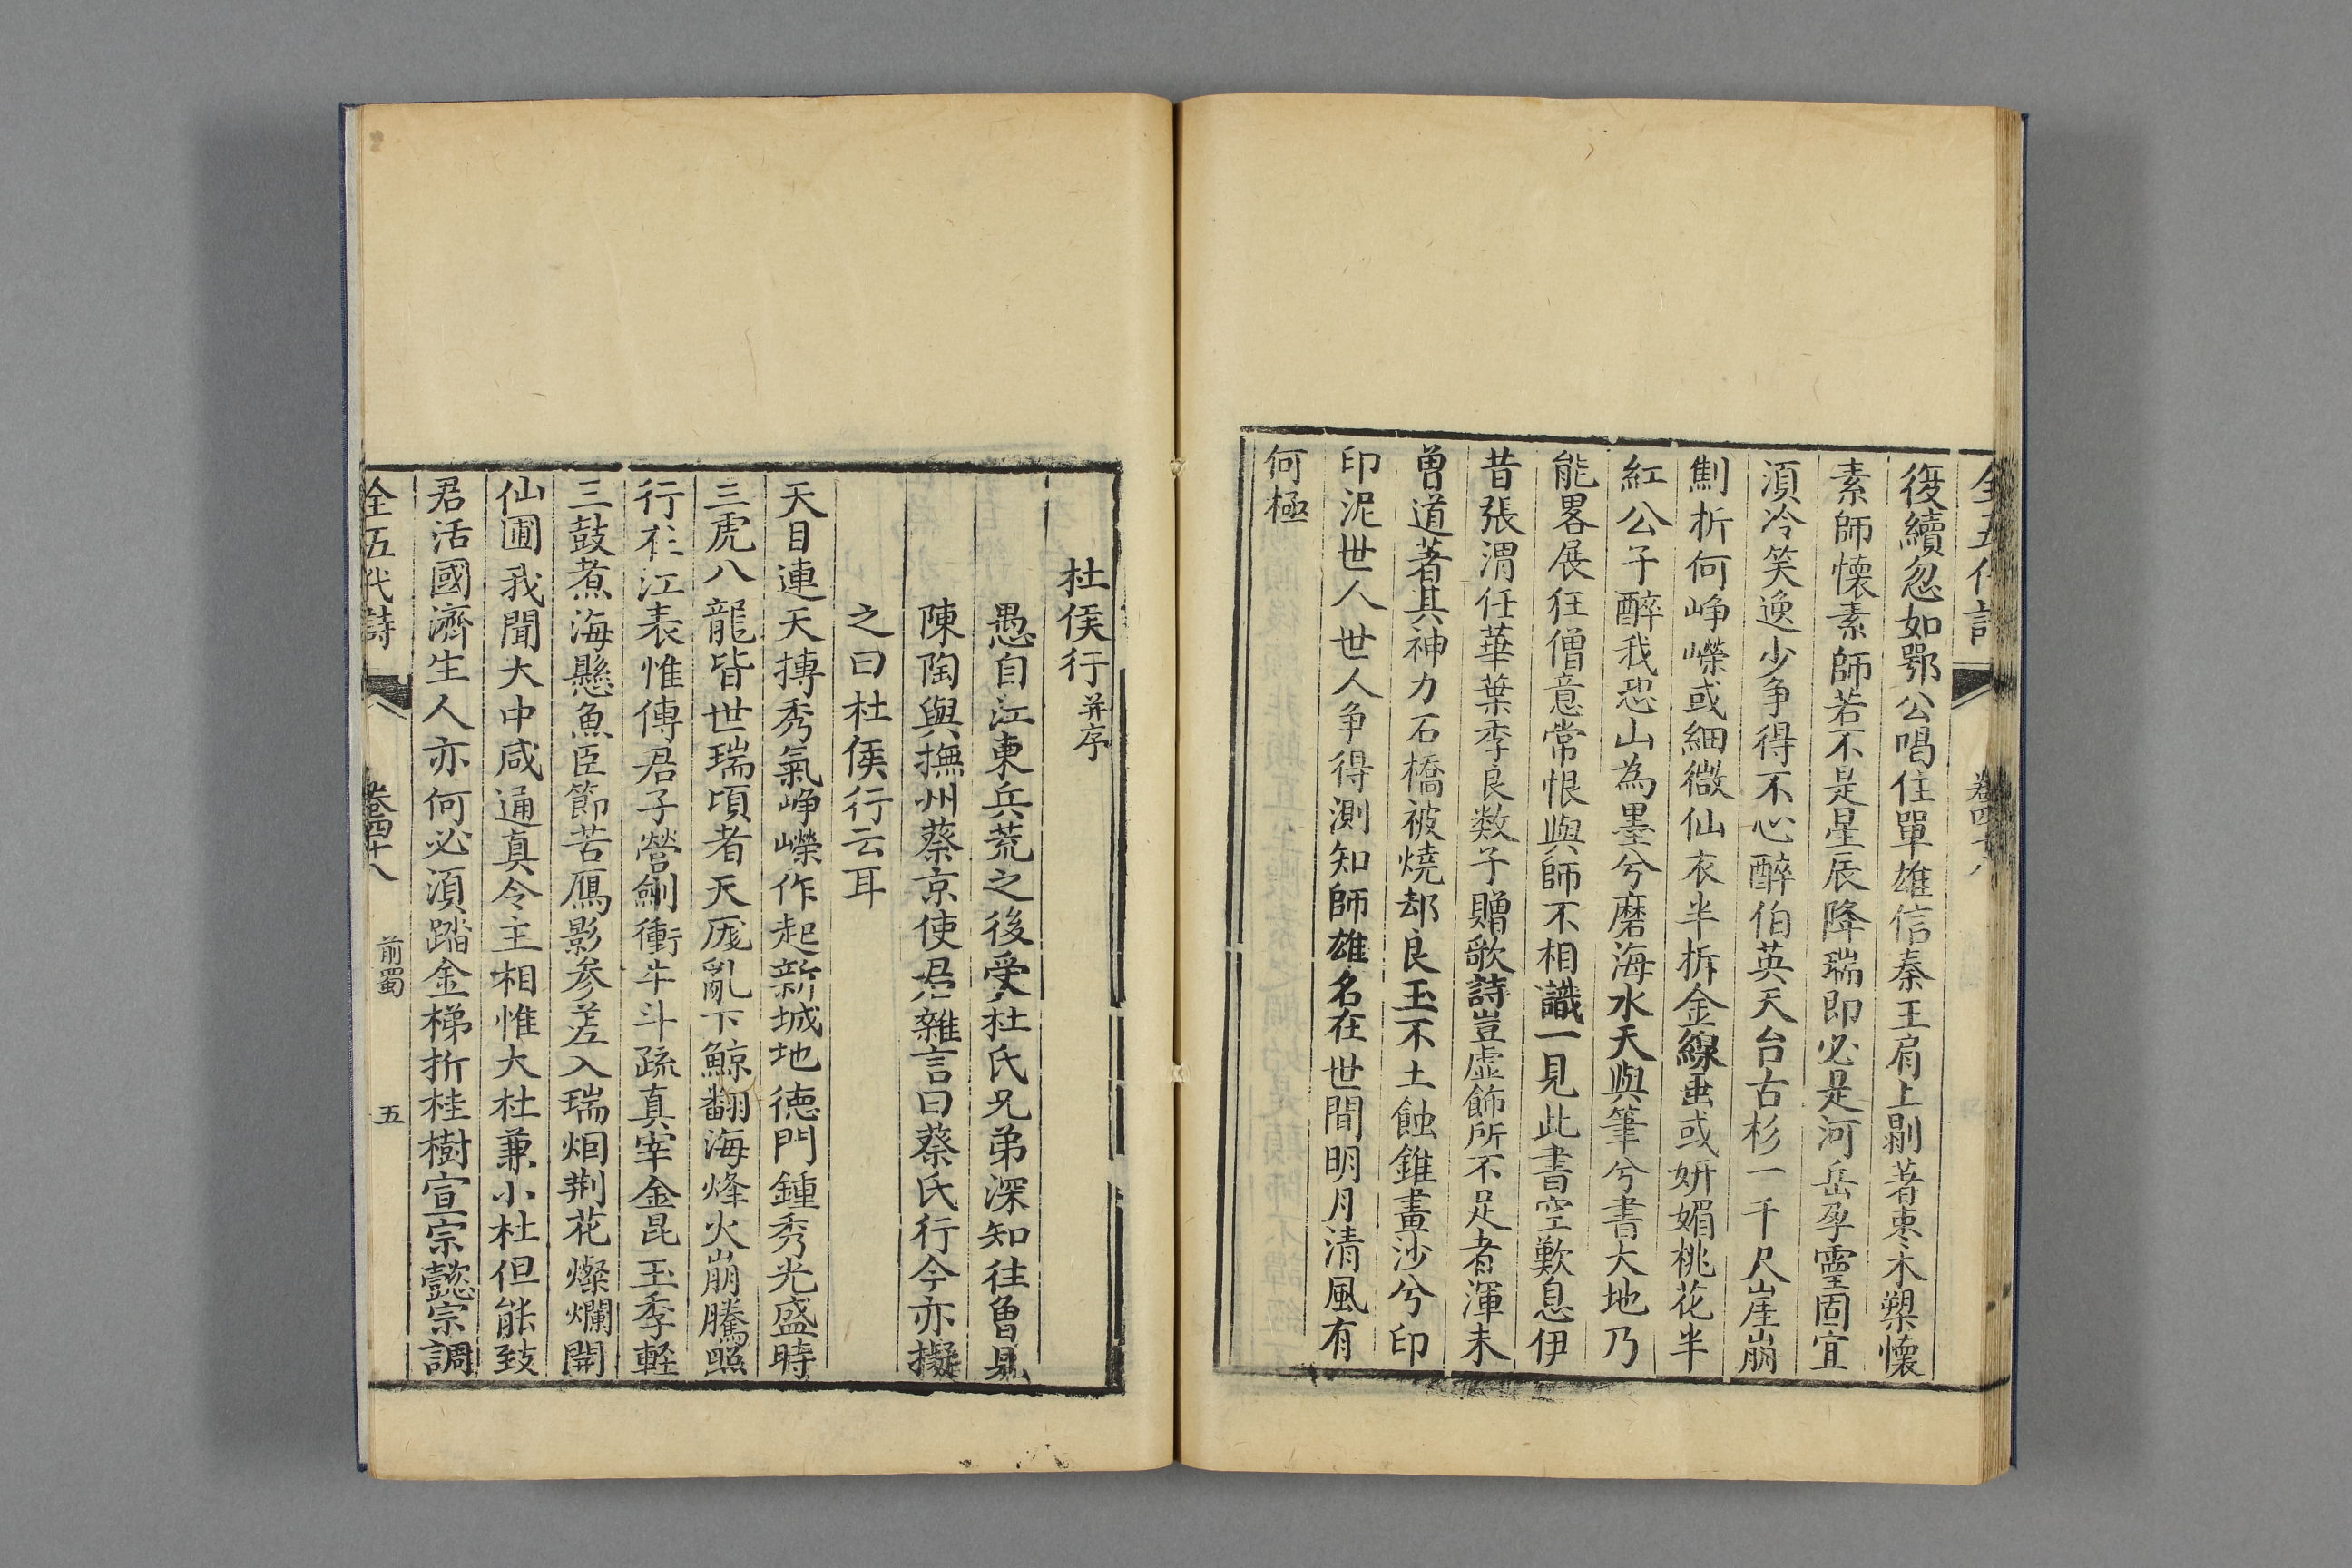 全五代詩 卷四十八
復續忽如鄂公喝住單雄信秦王肩上㔉著棗木槊懷
素師懷素師若不是星辰降瑞即必是河岳孕靈固宜
湏冷笑逸少争得不心醉伯英天台古杉一千尺崖崩
劁折何峥嶸或細微仙衣半拆金線垂或妍媚桃花半
紅公子醉我恐山為墨兮磨海水天與筆兮書大地乃
能畧展狂僧意常恨與師不相識一見此書空歎息伊
昔張渭任華葉季良数子贈歌詩豈虛飾所不足者渾未
曽道著其神力石橋被燒却良玉不土蝕錐畫沙兮印
印泥世人世人争得測知師雄名在世間明月清風有
何極
杜侯行 并序
愚自江東兵荒之後受杜氏兄弟深知往曽見
陳陶與撫州蔡京使君雜言曰蔡氏行今亦擬
之曰杜侯行云耳
天目連天搏秀氣峥嶸作起新城地徳門鍾秀光盛時
三虎八龍皆世瑞頃者天厖亂下鯨翻海烽火崩騰照
行在江表惟傳君子營劍衝牛斗疏真宰金昆玉季軽
三鼓煮海懸魚臣節苦鴈影参差入瑞烟荆花燦爛開
仙圃我聞大中咸通真令主相惟大杜兼小杜但能致
君活國濟生人亦何必湏踏金梯折桂樹宣宗懿宗調
全五代詩 卷四十八 前蜀 五